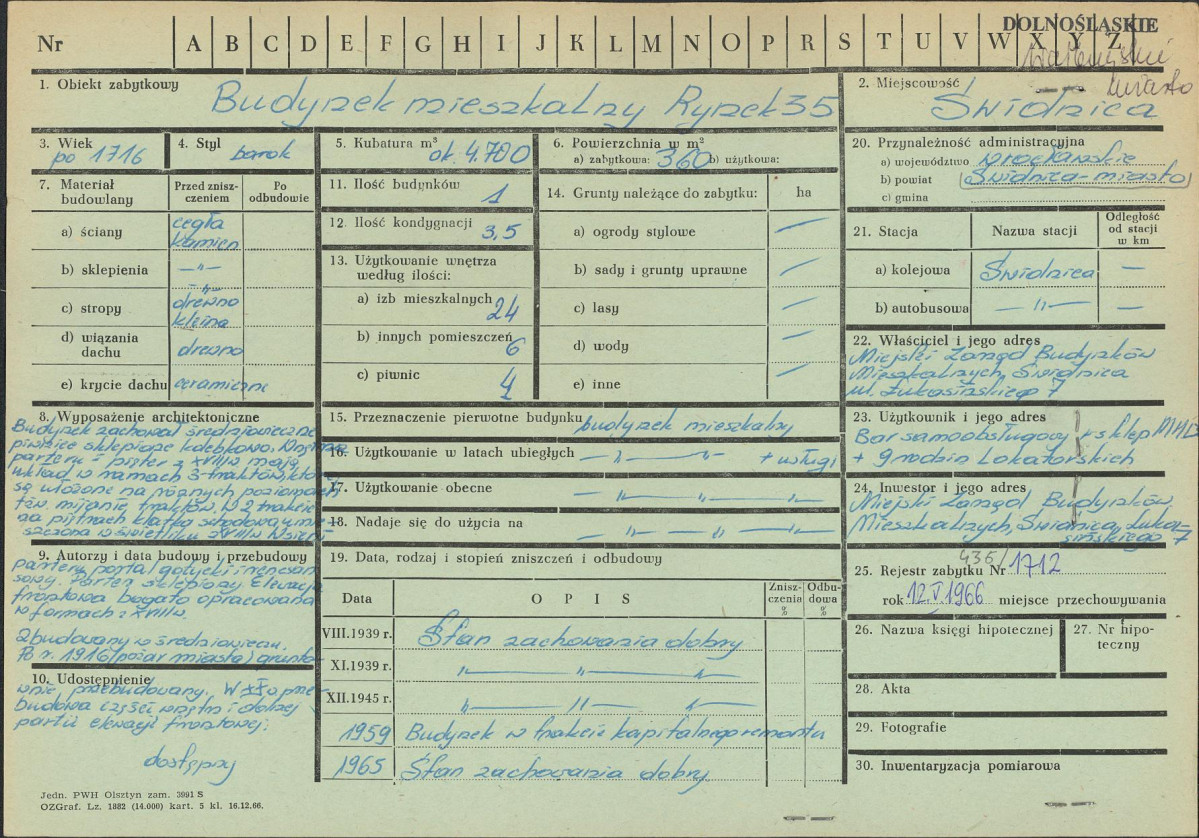 DOLNOŚLĄSKIE
Nr A B C D E F G H I J K L M N O P R S T U V W X Y Z
miasto
1. Obiekt zabytkowy Budynek mieszkalny Rynek 35
2. Miejscowość Świdnica
3. Wiek po 1716
4. Styl barok
5. Kubatura m³ ok. 4.700
6. Powierzchnia w m²
a) zabytkowa: 360 b) użytkowa:
7. Materiał budowlany
Przed zniszczeniem
Po odbudowie
a) ściany cegła kamień
b) sklepienia —"—
c) stropy —"— drewno kleina
d) wiązania dachu drewno
e) krycie dachu ceramiczne
8. Wyposażenie architektoniczne
Budynek zachował średniowieczne
piwnice sklepione kolebkowo. Wnętrza
parteru i pięter z XVIII w mają
układ w ramach 3-traktów, które
są ułożone na różnych poziomach
tzw. mijanie traktów. W 2 trakcie
na piętrach klatka schodowa umie-
szczona w świetliku z XVIII w W sieni
9. Autorzy i data budowy i przebudowy
parteru portal gotycki i renesan-
sowy. Parter sklepiony Elewacja
frontowa bogato opracowana
w formach z XVIII w.
Zbudowany w średniowieczu.
Po r. 1916 (pożar miasta) grunto-
10. Udostępnienie
wnie przebudowany. W XX w prze-
budowa części wnętrz i dolnej
partii elewacji frontowej.
dostępny
11. Ilość budynków 1
12. Ilość kondygnacji 3,5
13. Użytkowanie wnętrza według ilości:
a) izb mieszkalnych 24
b) innych pomieszczeń 6
c) piwnic 4
14. Grunty należące do zabytku: ha
a) ogrody stylowe —
b) sady i grunty uprawne —
c) lasy —
d) wody —
e) inne —
15. Przeznaczenie pierwotne budynku budynek mieszkalny
16. Użytkowanie w latach ubiegłych —"— + usługi
17. Użytkowanie obecne — " — " — " —
18. Nadaje się do użycia na — " — " — " —
19. Data, rodzaj i stopień zniszczeń i odbudowy
Data
OPIS
Zniszczenia %
Odbudowa %
VIII.1939 r. Stan zachowania dobry
XI.1939 r. " — " — " —
XII.1945 r. " — " — " —
1959 Budynek w trakcie kapitalnego remontu
1965 Stan zachowania dobry
20. Przynależność administracyjna
a) województwo wrocławskie
b) powiat Świdnica-miasto
c) gmina
21. Stacja
Nazwa stacji
Odległość od stacji w km
a) kolejowa Świdnica —
b) autobusowa —"— —
22. Właściciel i jego adres
Miejski Zarząd Budynków
Mieszkalnych, Świdnica
ul. Łukasińskiego 7
23. Użytkownik i jego adres
Bar samoobsługowy + sklep MHD
+ 9 rodzin lokatorskich
24. Inwestor i jego adres
Miejski Zarząd Budynków
Mieszkalnych, Świdnica, Łuka-
sińskiego 7
25. Rejestr zabytku Nr 435/1712
rok 12.V.1966 miejsce przechowywania
26. Nazwa księgi hipotecznej
27. Nr hipoteczny
28. Akta
29. Fotografie
30. Inwentaryzacja pomiarowa
Jedn. PWH Olsztyn zam. 3991 S
OZGraf. Lz. 1882 (14.000) kart. 5 kl. 16.12.66.